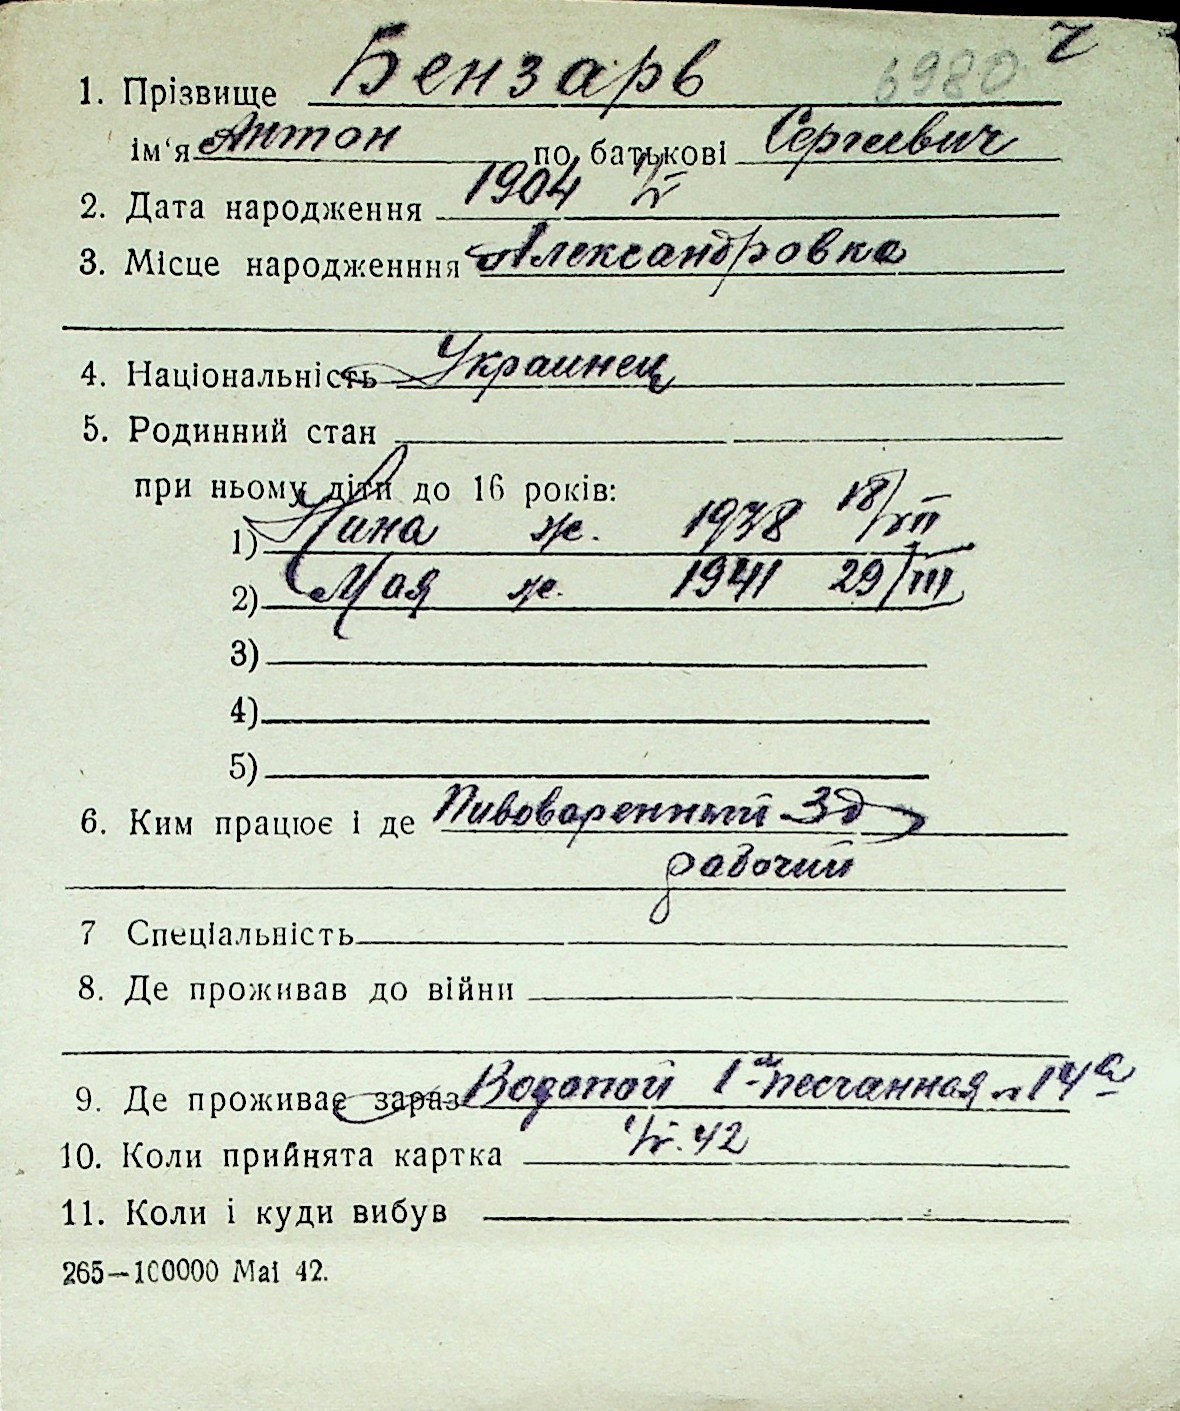 6980 ч
1. Прізвище Бензарь
ім'я Антон по батькові Сергиевич
2. Дата народження 1904
3. Місце народженння Александровка
4. Національність Украинец
5. Родинний стан
при ньому діти до 16 років:
1) Нина ж. 1938 18/XII
2) Мая ж. 1941 29/III
3)
4)
5)
6. Ким працює і де Пивоваренный Зд
рабочий
7 Спеціальність
8. Де проживав до війни
9. Де проживає зараз Водопой 1ая Песчанная 14а
10. Коли прийнята картка 42
11. Коли і куди вибув
265—100000 Маі 42.